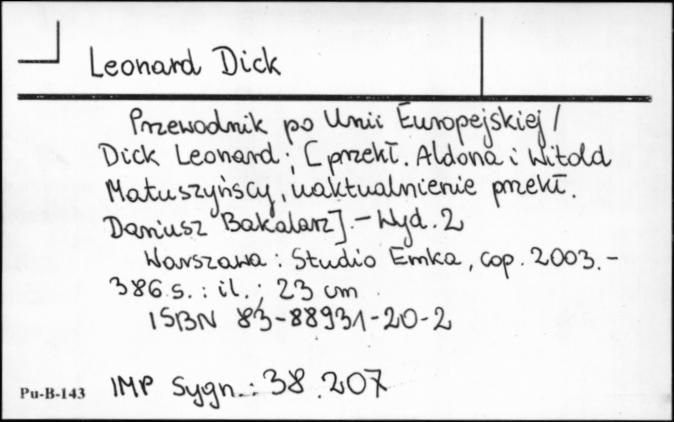 Leonard Dick
Przewodnik po Unii Europejskiej /
Dick Leonard ; [przekł. Aldona i Witold
Matuszyńscy, uaktualnienie przekł.
Dariusz Bakalarz]. - Wyd. 2
Warszawa : Studio Emka, cop. 2003. -
386 s. : il. ; 23 cm
ISBN 83-88931-20-2
Pu-B-143 IMP Sygn.: 38.207